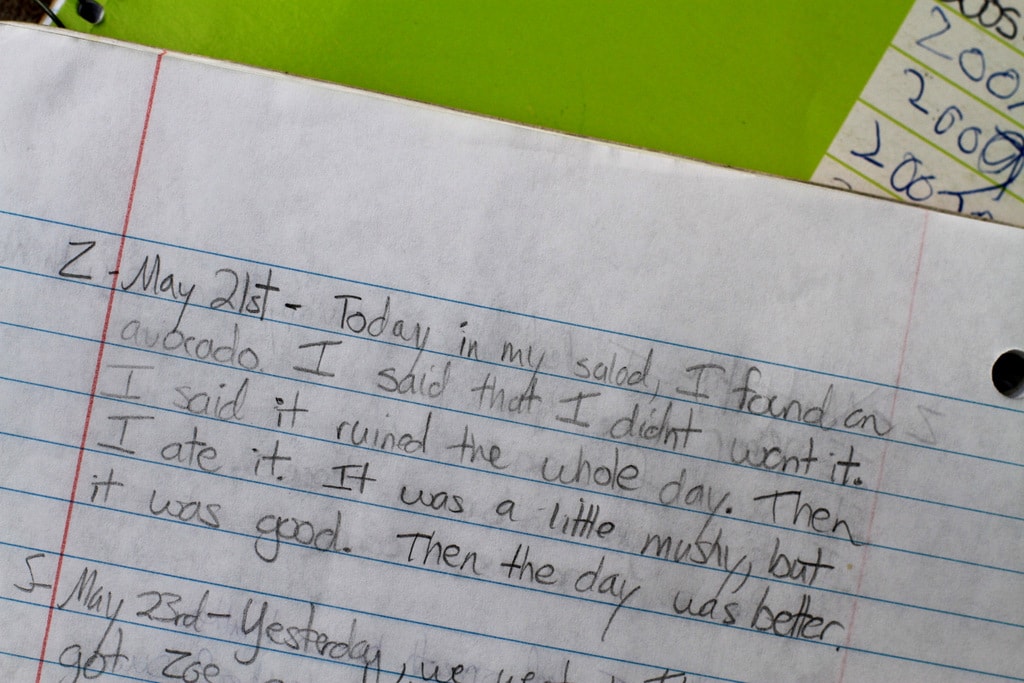 2001
200
200
Z - May 21st - Today in my salad, I found an
avocado. I said that I didn't want it.
I said it ruined the whole day. Then
I ate it. It was a little mushy, but
it was good. Then the day was better.
S - May 23rd - Yesterday, we went
got Zoe